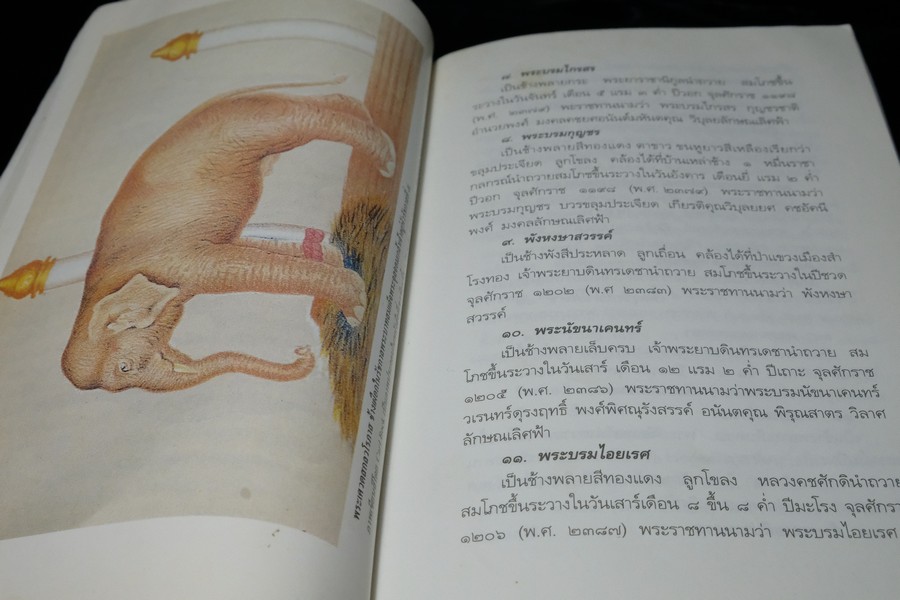 ๗ พระบรมไกรสร
เป็นช้างพลายกระ พระยาราชานิกูลนำถวาย สมโภชขึ้น
ระวางในวันจันทร์ เดือน ๕ แรม ๓ ค่ำ ปีวอก จุลศักราช ๑๑๙๘
(พ.ศ. ๒๓๗๙) พระราชทานนามว่า พระบรมไกรสร กุญชรชาติ
อำนวยพงศ์ มงคลคชยศอนันต์มหันตคุณ วิบุลยลักษณเลิศฟ้า
๘. พระบรมกุญชร
เป็นช้างพลายสีทองแดง ตาขาว ขนหูยาวสีเหลืองเรียกว่า
ขลุมประเจียด ลูกโขลง คล้องได้ที่บ้านเหล่าช้าง ๑ หมื่นราชา
กลกรณ์นำถวายสมโภชขึ้นระวางในวันอังคาร เดือนยี่ แรม ๒ ค่ำ
ปีวอก จุลศักราช ๑๑๙๘ (พ.ศ. ๒๓๗๙) พระราชทานนามว่า
พระบรมกุญชร บวรขลุมประเจียด เกียรติคุณวิบุลยยศ คชอัคนี
พงศ์ มงคลลักษณเลิศฟ้า
๙. พังหงษาสวรรค์
เป็นช้างพังสีประหลาด ลูกเถื่อน คล้องได้ที่ป่าแขวงเมืองสำ
โรงทอง เจ้าพระยาบดินทรเดชานำถวาย สมโภชขึ้นระวางในปีชวด
จุลศักราช ๑๒๐๒ (พ.ศ ๒๓๘๓) พระราชทานนามว่า พังหงษา
สวรรค์
๑๐. พระนัขนาเคนทร์
เป็นช้างพลายเล็บครบ เจ้าพระยาบดินทรเดชานำถวาย สม
โภชขึ้นระวางในวันเสาร์ เดือน ๑๒ แรม ๒ ค่ำ ปีเถาะ จุลศักราช
๑๒๐๕ (พ.ศ. ๒๓๘๖) พระราชทานนามว่าพระบรมนัขนาเคนทร์
วเรนทร์ดุรงฤทธิ์ พงศ์พิศณุรังสรรค์ อนันตคุณ พิรุณสาตร วิลาศ
ลักษณเลิศฟ้า
๑๑. พระบรมไอยเรศ
เป็นช้างพลายสีทองแดง ลูกโขลง หลวงคชศักดินำถวาย
สมโภชขึ้นระวางในวันเสาร์เดือน ๘ ขึ้น ๘ ค่ำ ปีมะโรง จุลศักรา
๑๒๐๖ (พ.ศ. ๒๓๘๗) พระราชทานนามว่า พระบรมไอยเรศ